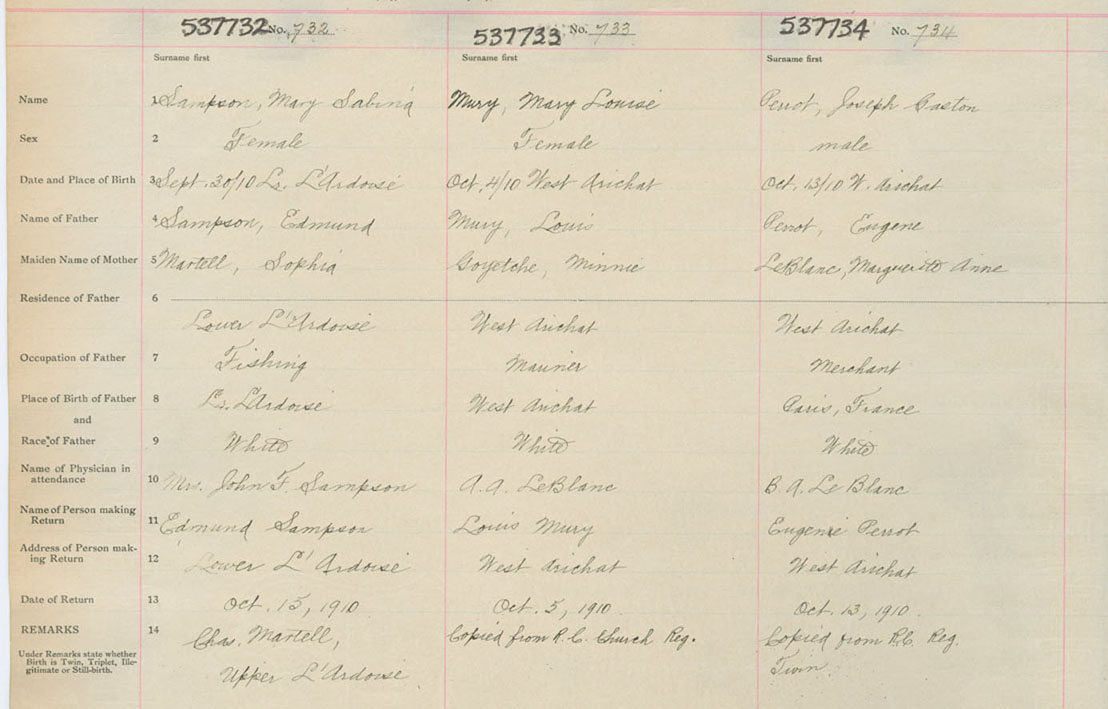 537732 No. 732 537733 No. 733 537734 No. 734
Surname first Surname first Surname first
Name 1 Sampson, Mary Sabina Mury, Mary Louise Perrot, Joseph Gaston
Sex 2 Female Female male
Date and Place of Birth 3 Sept. 30/10 Lr. L'Ardoise Oct. 4/10 West Arichat Oct. 13/10 W. Arichat
Name of Father 4 Sampson, Edmund Mury, Louis Perrot, Eugene
Maiden Name of Mother 5 Martell, Sophia Goyetche, Minnie LeBlanc, Marguerite Anne
Residence of Father 6
Lower L'Ardoise West Arichat West Arichat
Occupation of Father 7 Fishing Mariner Merchant
Place of Birth of Father 8 Lr. L'Ardoise West Arichat Paris, France
and
Race of Father 9 White White White
Name of Physician in
attendance 10 Mrs. John F. Sampson A. A. LeBlanc B. A. Le Blanc
Name of Person making
Return 11 Edmund Sampson Louis Mury Eugene Perrot
Address of Person mak-
ing Return 12 Lower L'Ardoise West Arichat West Arichat
Date of Return 13 Oct. 15, 1910 Oct. 5, 1910 Oct. 13, 1910
REMARKS 14 Chas. Martell, Copied from R. C. Church Reg. Copied from R.C. Reg.
Under Remarks state whether
Birth is Twin, Triplet, Ille-
gitimate or Still-birth. Upper L'Ardoise Twin